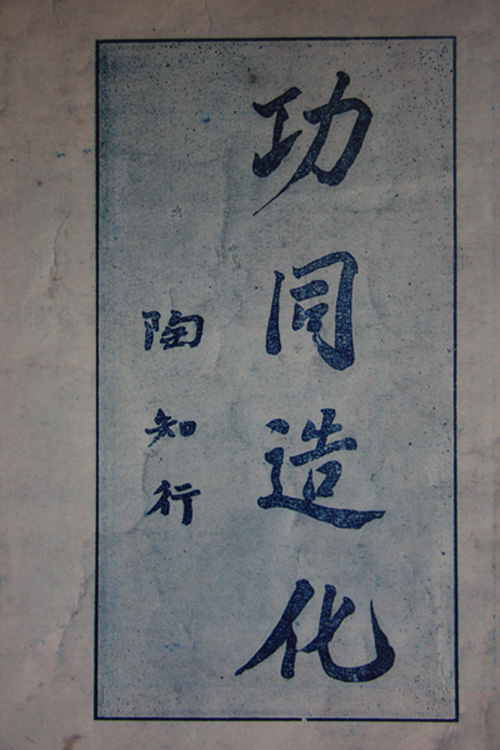 功同造化
陶知行